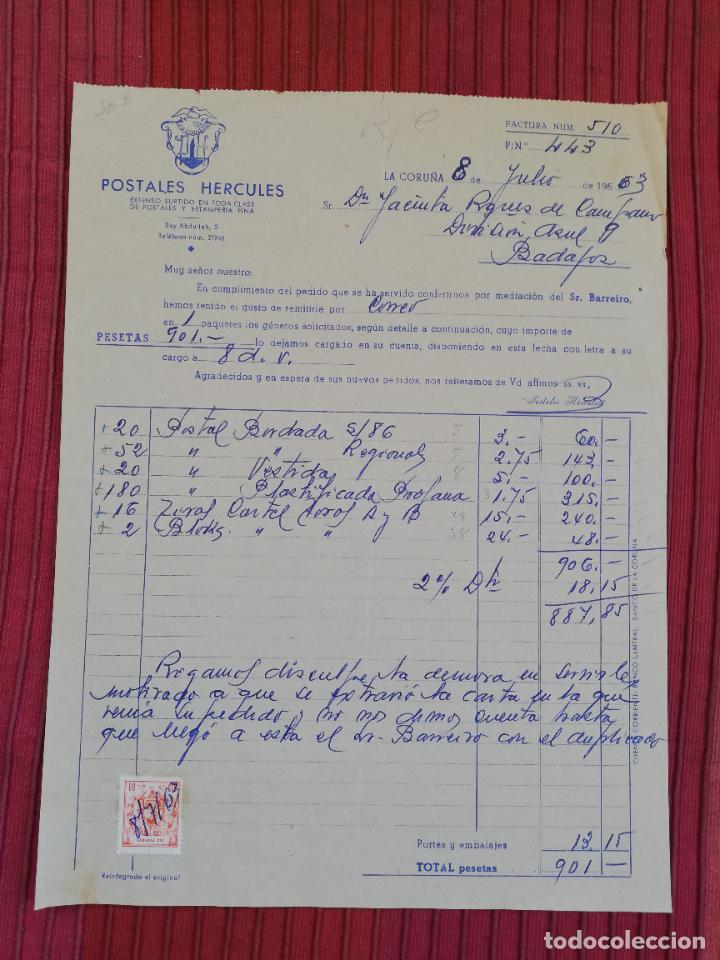 30
POSTALES HERCULES
EXTENSO SURTIDO EN TODA CLASE
DE POSTALES Y ESTAMPERIA FINA
Rey Abdullah, 5
Teléfono núm. 27946
FACTURA NUM. 510
P/Nº 443
LA CORUÑA 8 de Julio de 1963
Sr. Dña Jacinta
División Azul 9
Badajoz
Muy señor nuestro:
En cumplimiento del pedido que se ha servido conferirnos por mediación del Sr. Barreiro,
hemos tenido el gusto de remitirle por Correo
en 1 paquetes los géneros solicitados, según detalle a continuación, cuyo importe de
PESETAS 901.- lo dejamos cargado en su cuenta, disponiendo en esta fecha con letra a su
cargo a 8 d. v.
Agradecidos y en espera de sus nuevos pedidos, nos reiteramos de Vd afimos ss. ss.,
Postales Hércules
+ 20 Postal Bordada s/86 3 3.- 60.-
+ 52 " " Regional 5 2.75 143.-
+ 20 " Vestida 8 5.- 100.-
+ 180 " Plastificada Profana 3 1.75 315.-
+ 16 Cartel A y B 15.- 240.-
+ 2 Blokg. " " 38 24.- 48.-
906.-
2% 18,15
887,85
Rogamos disculpe la demora en servirle,
motivado a que se extravió la carta en la que
venía su pedido, no nos dimos cuenta hasta
que llegó a esta el Sr. Barreiro con el duplicado
CUENTA CORRIENTE: BANCO CENTRAL - BANCO DE LA CORUÑA
8/7/63
Portes y embalajes 13.15
TOTAL pesetas 901 -
Reintegrado el original
todocoleccion
todocoleccion.net